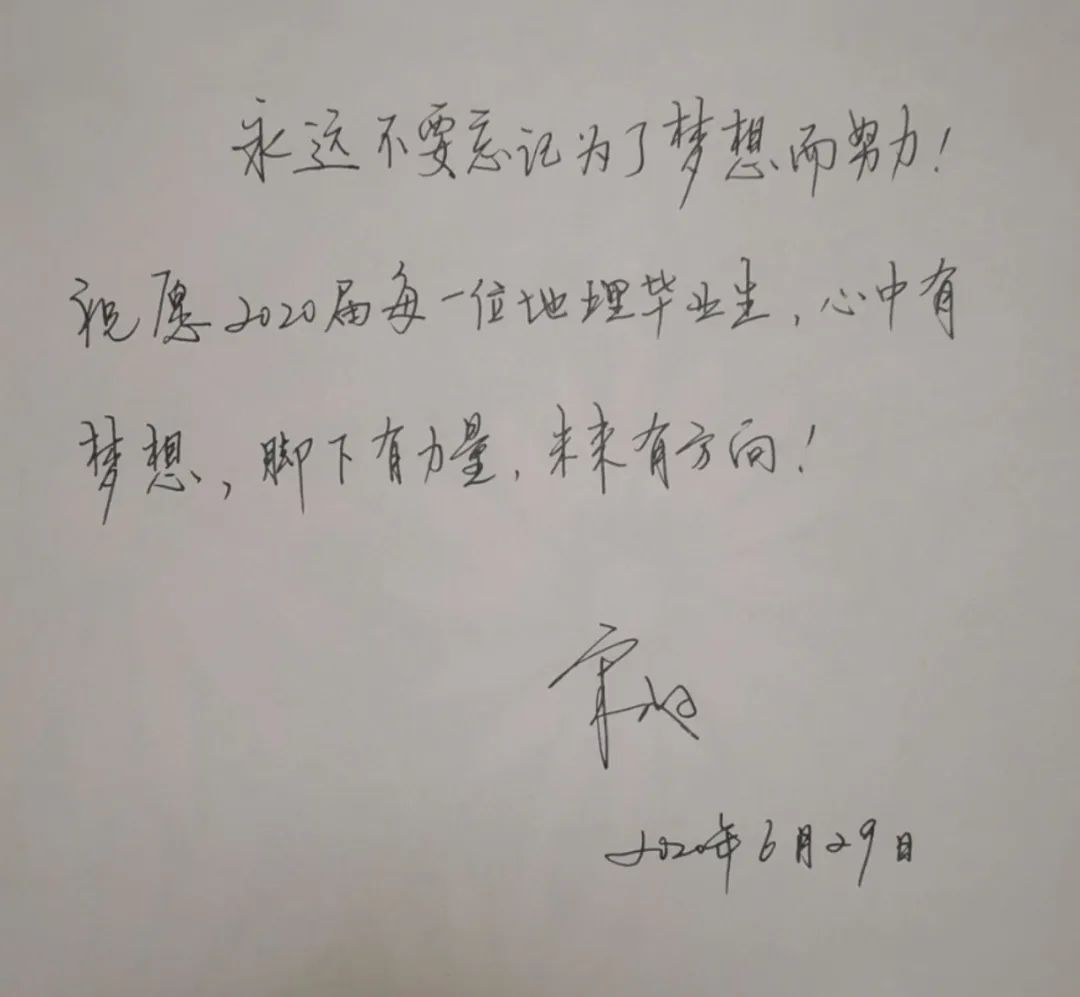 永远不要忘记为了梦想而努力!
祝愿2020届每一位地理毕业生,心中有
梦想,脚下有力量,未来有方向!
2020年6月29日